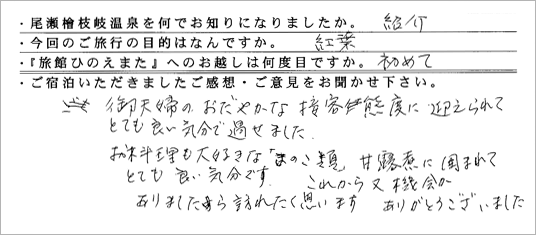 ・尾瀬檜枝岐温泉を何でお知りになりましたか。 紹介
・今回のご旅行の目的はなんですか。 紅葉
・『旅館ひのえまた』へのお越しは何度目ですか。初めて
・ご宿泊いただきましたご感想・ご意見をお聞かせ下さい。
御夫婦の おだやかな 接客態度に 迎えられて
とても良い気分で過せました。
お料理も大好きな「きのこ類」甘露煮に囲まれて
とても 良い気分です。 これから又機会が
ありましたら訪れたく思います ありがとうございました